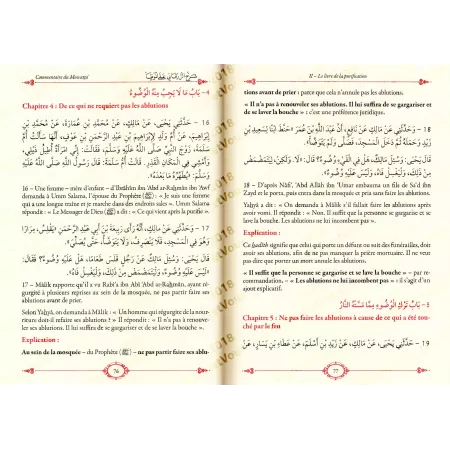 Commentaire du Mouwatta'
4 – بَابُ مَا لَا يَجِبُ مِنْهُ الْوُضُوءُ
Chapitre 4 : De ce qui ne requiert pas les ablutions
16 – حَدَّثَنِي يَحْيَى، عَنْ مَالِكٍ، عَنْ مُحَمَّدِ بْنِ عُمَارَةَ، عَنْ مُحَمَّدِ بْنِ
إِبْرَاهِيمَ، عَنْ أُمِّ وَلَدٍ لِإِبْرَاهِيمَ بْنِ عَبْدِ الرَّحْمَنِ بْنِ عَوْفٍ، أَنَّهَا سَأَلَتْ أُمَّ
سَلَمَةَ، زَوْجَ النَّبِيِّ صَلَّى اللهُ عَلَيْهِ وَسَلَّمَ، فَقَالَتْ: إِنِّي امْرَأَةٌ أُطِيلُ ذَيْلِي،
وَأَمْشِي فِي الْمَكَانِ الْقَذِرِ. قَالَتْ أُمُّ سَلَمَةَ: قَالَ رَسُولُ اللهِ صَلَّى اللهُ عَلَيْهِ
وَسَلَّمَ: «يُطَهِّرُهُ مَا بَعْدَهُ».
16 – Une femme – mère d'enfant – d'Ibrâhîm ibn 'Abd ar-Rahmân ibn 'Awf
demanda à Umm Salama, l'épouse du Prophète (ﷺ) : « Je suis une femme
qui a une longue traîne et je marche dans des endroits sales ». Umm Salama
répondit : « Le Messager de Dieu (ﷺ) a dit : « Ce qui vient après la purifie ».
17 – حَدَّثَنِي عَنْ مَالِكٍ، أَنَّهُ رَأَى رَبِيعَةَ بْنَ أَبِي عَبْدِ الرَّحْمَنِ، يَقْلِسُ، مِرَارًا
وَهُوَ فِي الْمَسْجِدِ، فَلَا يَنْصَرِفُ، وَلَا يَتَوَضَّأُ، حَتَّى يُصَلِّيَ.
قَالَ يَحْيَى: وَسُئِلَ مَالِكٌ عَنْ رَجُلٍ قَلَسَ طَعَامًا، هَلْ عَلَيْهِ وُضُوءٌ؟ فَقَالَ:
لَيْسَ عَلَيْهِ وُضُوءٌ، وَلْيَتَمَضْمَضْ مِنْ ذَلِكَ، وَلْيَغْسِلْ فَاهُ.
17 – Mâlik rapporte qu'il a vu Rabî'a ibn Abî 'Abd ar-Rahmân, ayant
gité à plusieurs reprises au sein de la mosquée, ne pas partir faire ses
ablutions avant de prier.
Selon Yahyâ, on demanda à Mâlik : « Un homme qui régurgite de la nour-
riture doit-il refaire ses ablutions ? » Il répondit : « Il n'a pas à renouve-
ler ses ablutions. Il lui suffira de se gargariser et de se laver la bouche ».
Explication :
Au sein de la mosquée – du Prophète (ﷺ) – ne pas partir faire ses ablu-
76
II – Le livre de la purification
tions avant de prier : parce que cela n'annule pas les ablutions.
« Il n'a pas à renouveler ses ablutions. Il lui suffira de se gargariser et
de se laver la bouche » : c'est une préférence juridique.
18 – حَدَّثَنِي عَنْ مَالِكٍ، عَنْ نَافِعٍ، أَنَّ عَبْدَ اللهِ بْنَ عُمَرَ حَنَّطَ ابْنًا لِسَعِيدِ بْنِ
زَيْدٍ، وَحَمَلَهُ، ثُمَّ دَخَلَ الْمَسْجِدَ، فَصَلَّى وَلَمْ يَتَوَضَّأْ.
قَالَ يَحْيَى: وَسُئِلَ مَالِكٌ، هَلْ فِي الْقَيْءِ وُضُوءٌ؟ قَالَ: لَا، وَلَكِنْ، لِيَتَمَضْمَضْ
مِنْ ذَلِكَ، وَلْيَغْسِلْ فَاهُ، وَلَيْسَ عَلَيْهِ وُضُوءٌ.
18 – D'après Nâfi', 'Abd Allâh ibn 'Umar embauma un fils de Sa'd ibn
Zayd et le porta, puis entra dans la mosquée et pria sans faire les ablutions.
Yahyâ a dit : « On demanda à Mâlik s'il fallait faire les ablutions après
avoir vomi. Il répondit : « Non. Il suffit que la personne se gargarise et se
lave la bouche. Les ablutions ne lui incombent pas ».
Explication :
Ce hadîth signifie que celui qui porte un défunt ou suit des funérailles, doit
avoir ses ablutions, afin de ne pas manquer la prière mortuaire. Il ne veut
pas dire que les ablutions incombent.
« Il suffit que la personne se gargarise et se lave la bouche » – par re-
commandation, – « Les ablutions ne lui incombent pas » : il s'agit d'un
ajout explicatif.
5 – بَابُ تَرْكِ الْوُضُوءِ مِمَّا مَسَّتْهُ النَّارُ
Chapitre 5 : Ne pas faire les ablutions à cause de ce qui a été tou-
ché par le feu
19 – حَدَّثَنِي يَحْيَى، عَنْ مَالِكٍ، عَنْ زَيْدِ بْنِ أَسْلَمَ، عَنْ عَطَاءِ بْنِ يَسَارٍ، عَنْ
77